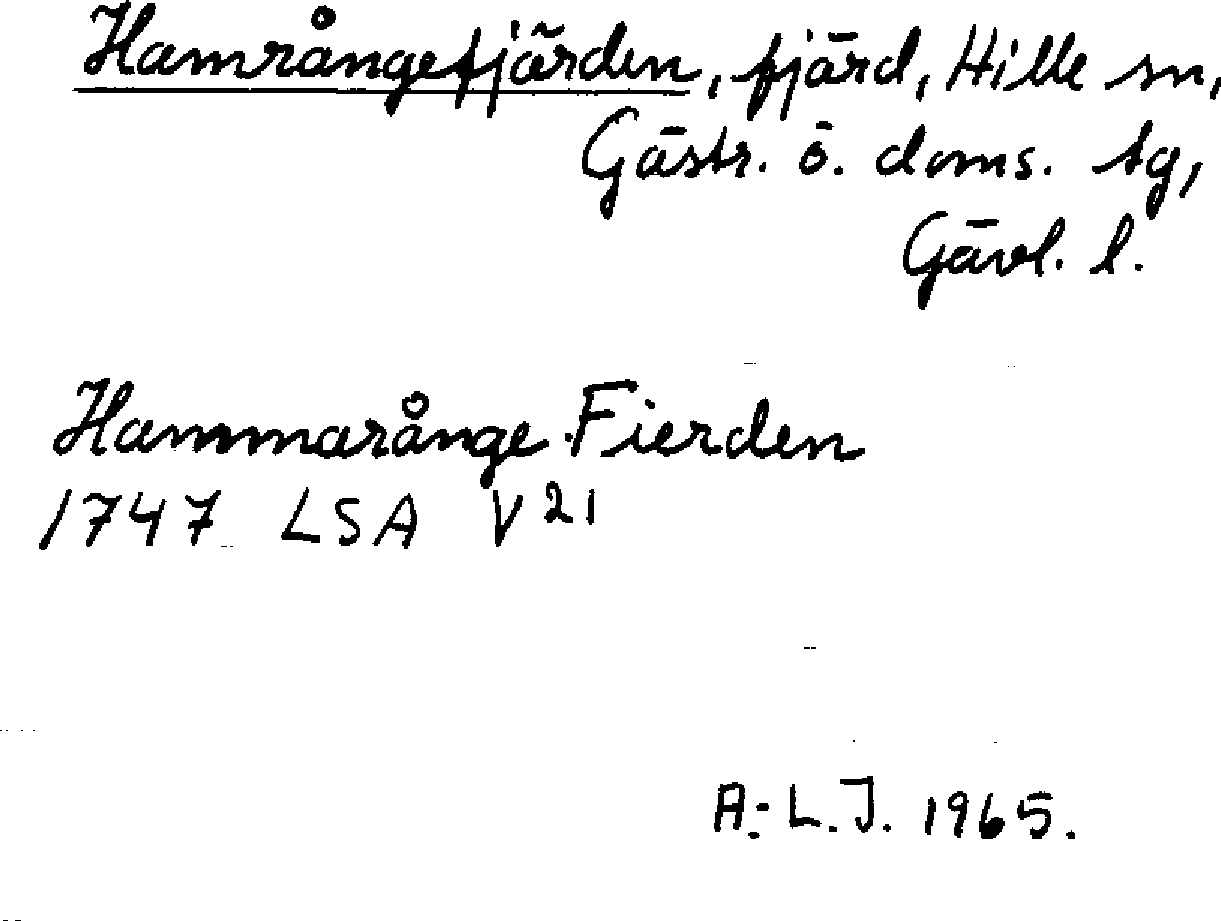 Hamrångefjärden, fjärd, Hille sn,
Gästr. ö. doms. tg,
Gävl. l.
Hammarånge Fierden
1747 LSA V 21
A.-L.J. 1965.